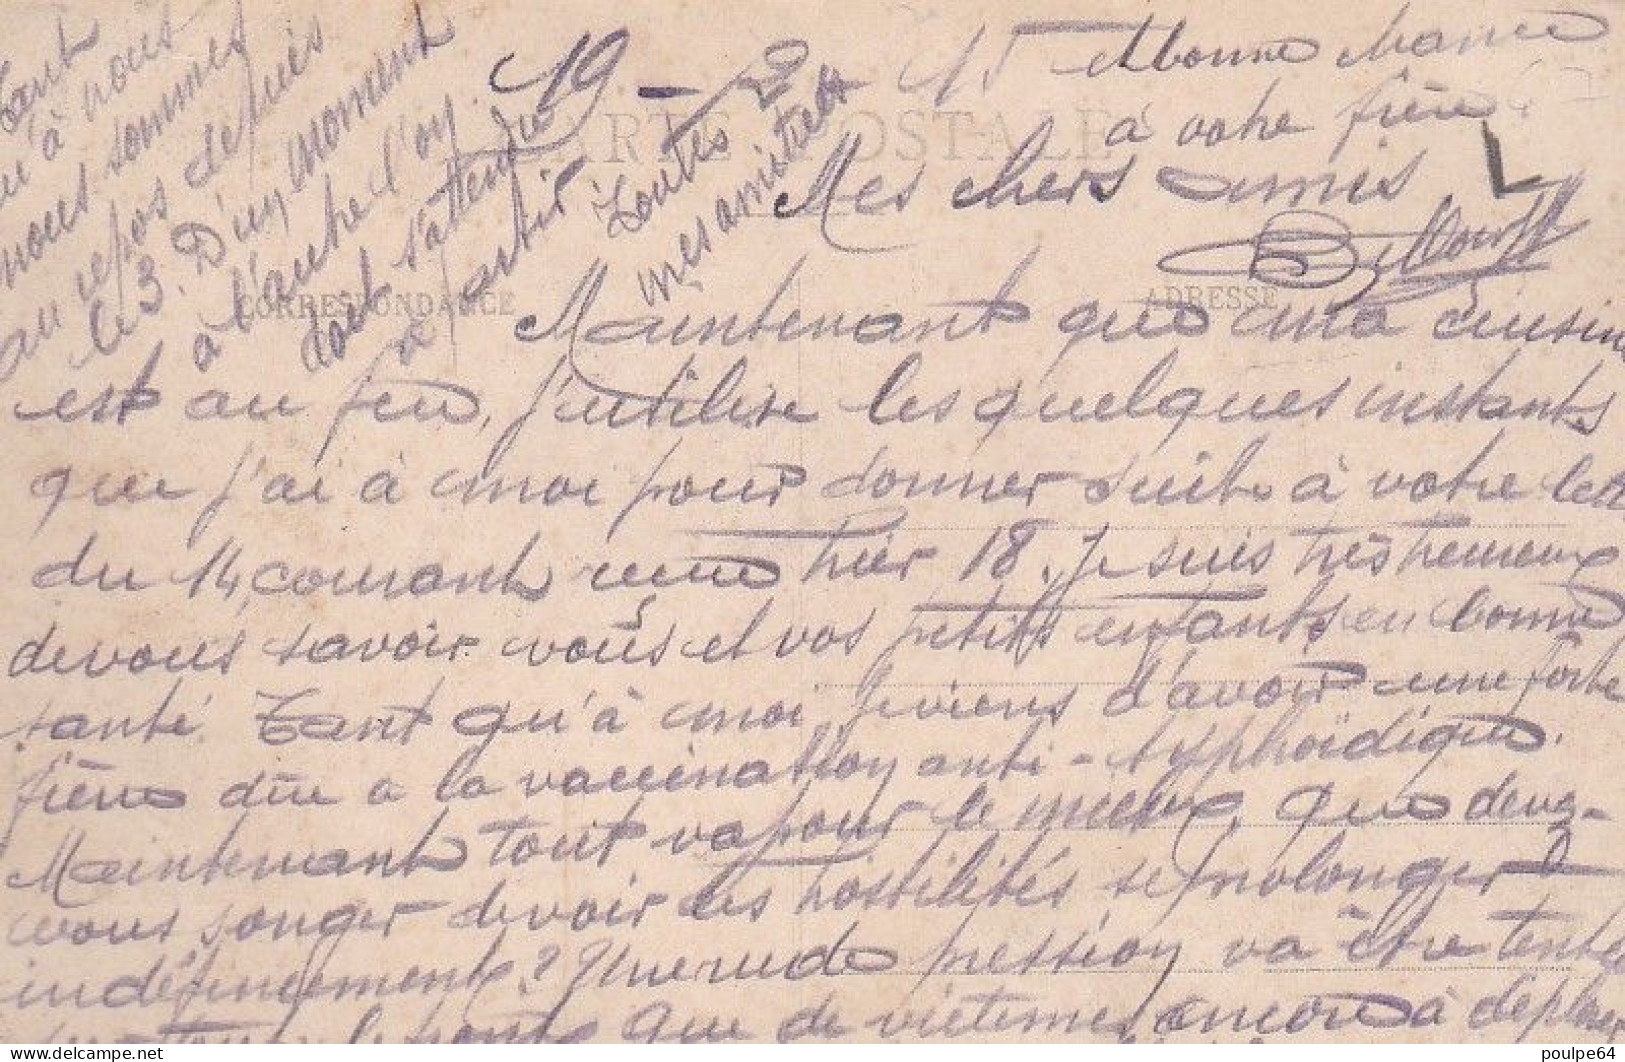 19 - 2 15 bonne chance
à votre frère
CARTE POSTALE
Mes chers amis
CORRESPONDANCE
ADRESSE
Maintenant que ma cuisine
est au feu, j'utilise les quelques instants
que j'ai à moi pour donner suite à votre
du 14 courant reçue hier 18. Je suis très heureux
de vous savoir vous et vos petits enfants en bonne
santé. Tant qu'à moi je viens d'avoir une forte
fièvre dûe a la vaccination anti-typhoïdique.
Maintenant tout va pour le mieux, que devez-
vous songer de voir les hostilités se prolonger
indéfiniment? Une rude pression va être tentée
que de victimes encore à déplorer
Tant
qu'à nous
nous sommes
au repos depuis
le 3. D'un moment
à l'autre l'on
doit s'attendre
à partir
Toutes
mes amitiés
poulpe64